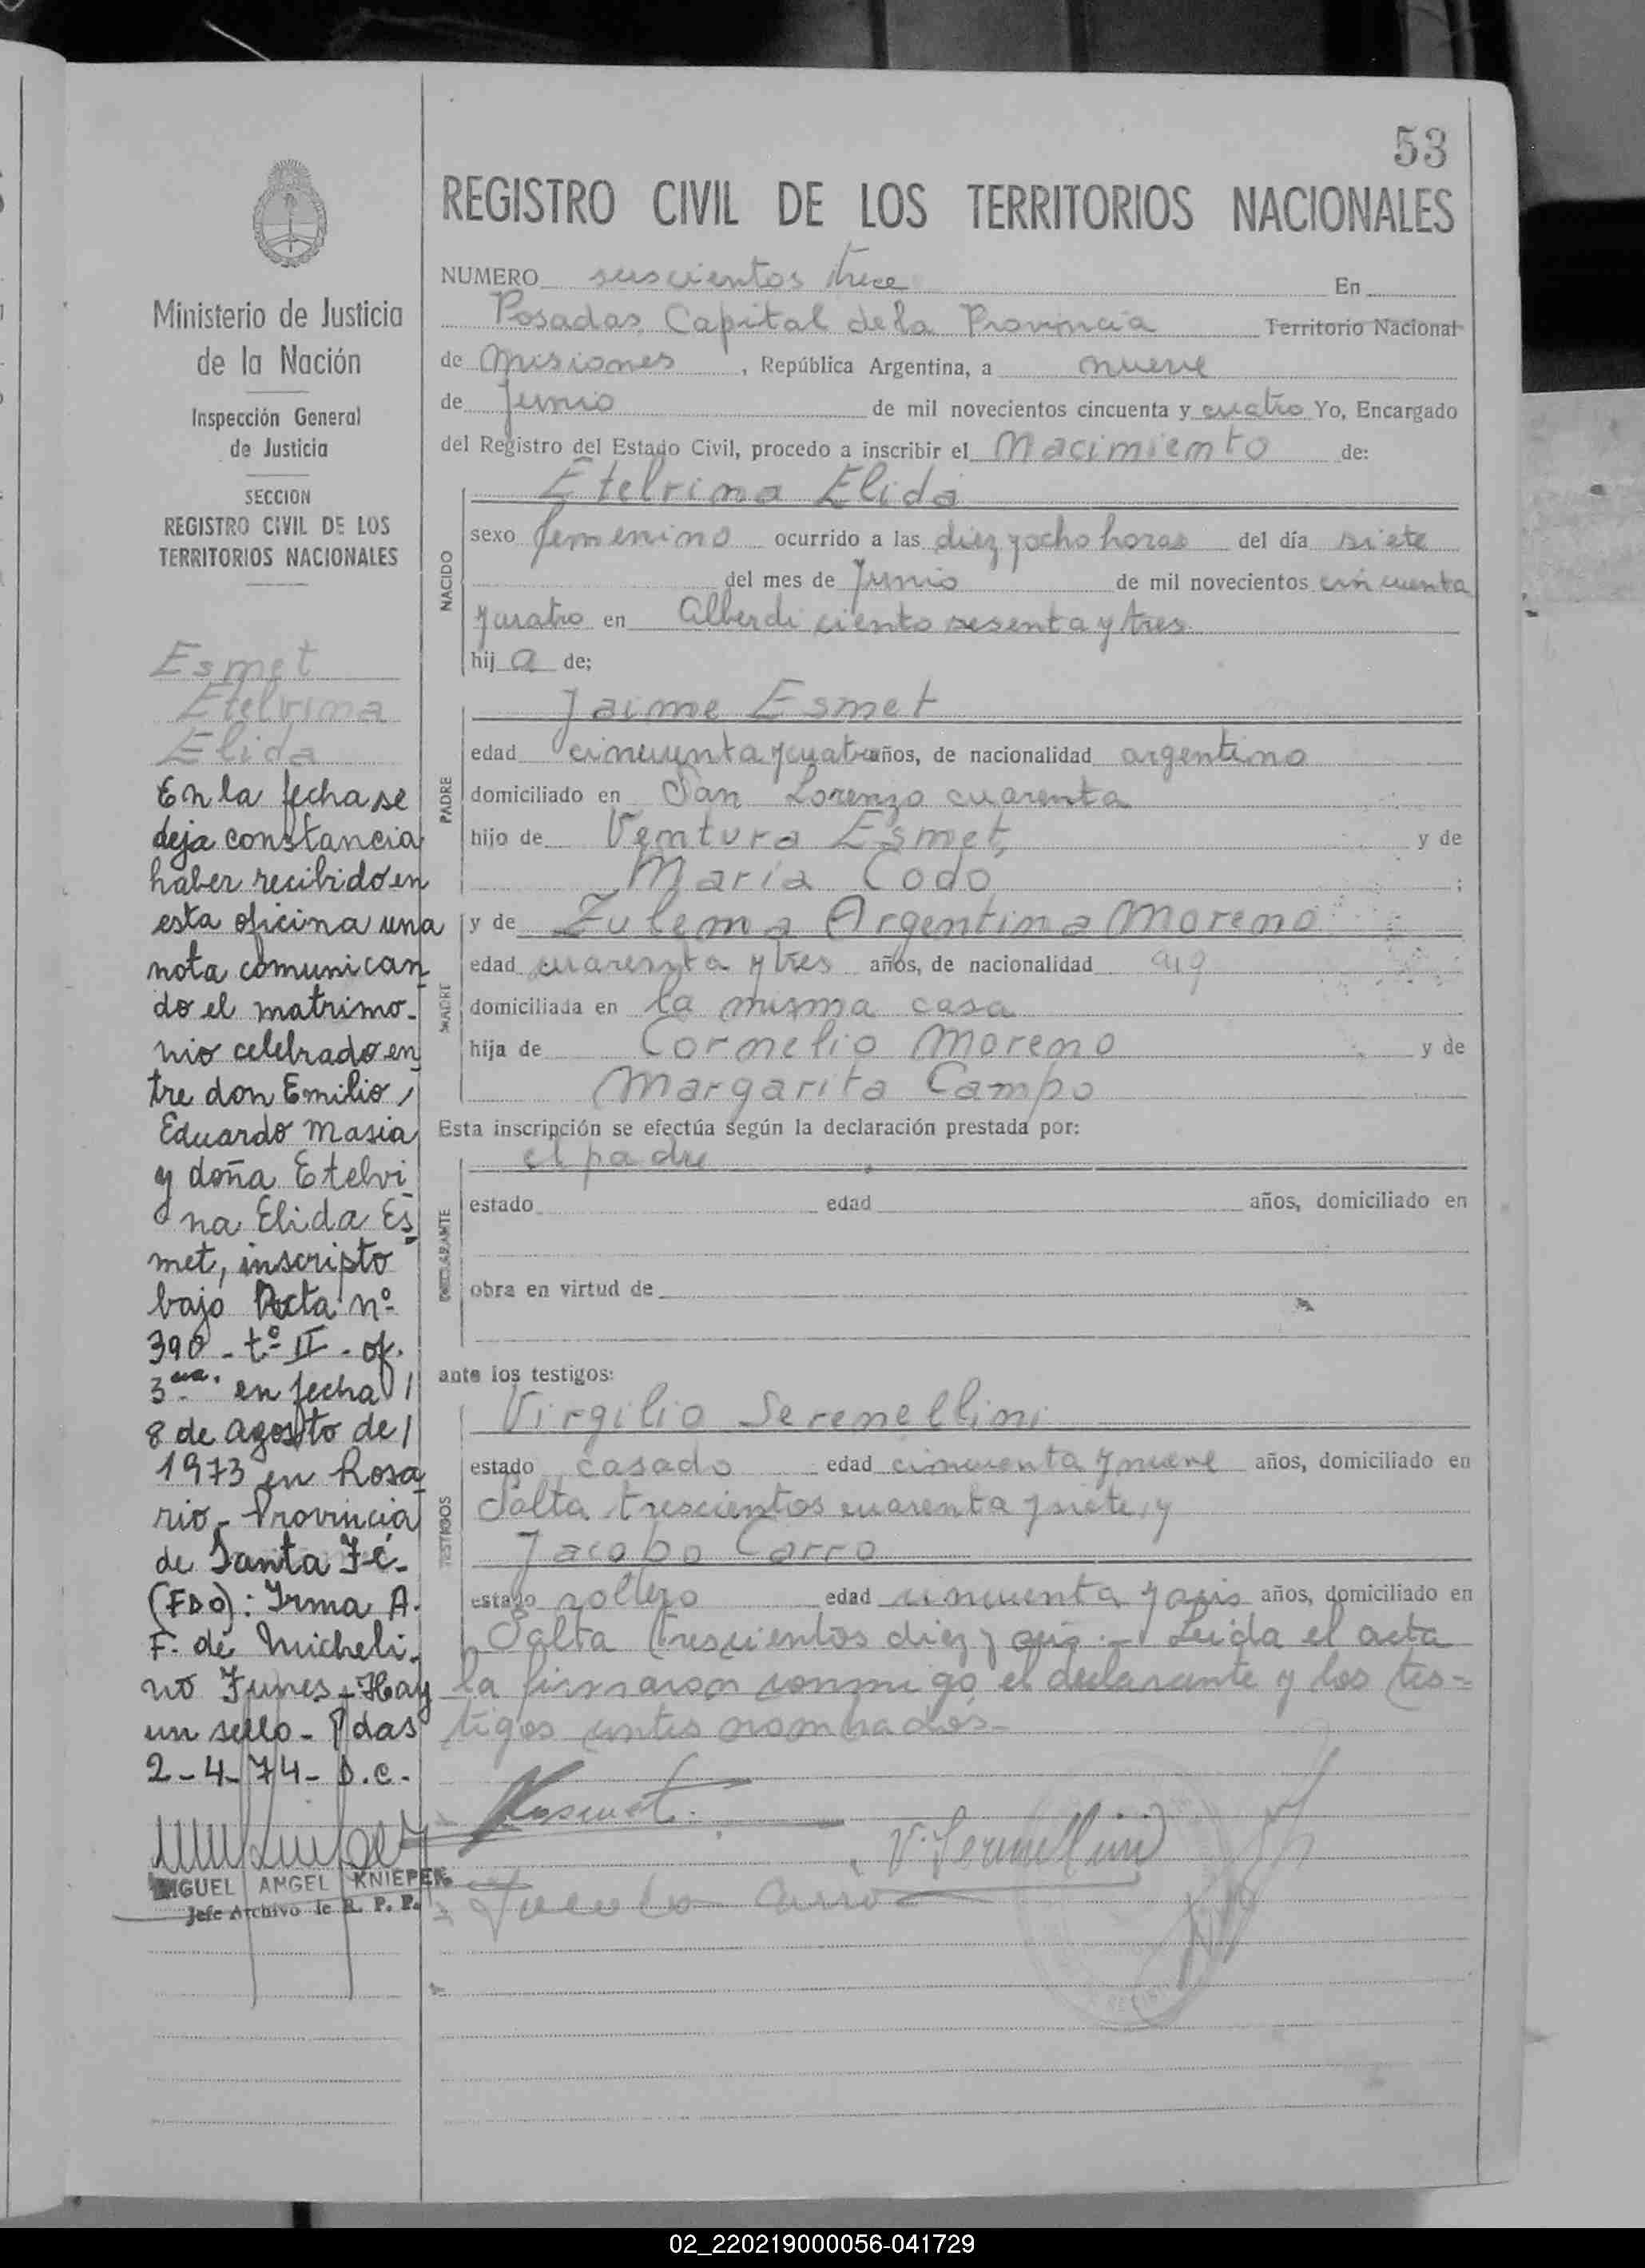 53
REGISTRO CIVIL DE LOS TERRITORIOS NACIONALES
NUMERO seiscientos trece En
Posadas Capital de la Provincia Territorio Nacional
de Misiones, República Argentina, a nueve
de Junio de mil novecientos cincuenta y cuatro Yo, Encargado
del Registro del Estado Civil, procedo a inscribir el Nacimiento de:
NACIDO
Etelvina Elida
sexo femenino ocurrido a las diez y ocho horas del día siete
del mes de Junio de mil novecientos cincuenta
y cuatro en Alberdi ciento sesenta y tres
hij a de;
PADRE
Jaime Esmet
edad cincuenta y cuatro años, de nacionalidad argentino
domiciliado en San Lorenzo cuarenta
hijo de Ventura Esmet, y de
María Codo ;
MADRE
y de Zulema Argentina Moreno
edad cuarenta y tres años, de nacionalidad arg
domiciliada en la misma casa
hija de Cornelio Moreno y de
Margarita Campo
Esta inscripción se efectúa según la declaración prestada por:
DECLARANTE
el padre
estado edad años, domiciliado en
obra en virtud de
ante los testigos:
TESTIGOS
Virgilio Serenellini
estado casado edad cincuenta y nueve años, domiciliado en
Salta trescientos cuarenta y siete, y
Jacobo Carro
estado soltero edad cincuenta y seis años, domiciliado en
Salta trescientos diez y seis.- Leida el acta
la firmaron conmigo el declarante y los tes=
tigos antes nombrados.-
V. Serenellini
Jacobo Carro
Ministerio de Justicia
de la Nación
Inspección General
de Justicia
SECCION
REGISTRO CIVIL DE LOS
TERRITORIOS NACIONALES
Esmet
Etelvina
Elida
En la fecha se
deja constancia
haber recibido en
esta oficina una
nota comunican
do el matrimo-
nio celebrado en
tre don Emilio /
Eduardo Masia
y doña Etelvi
na Elida Es
met, inscripto
bajo Acta nº
390 - tº II - of.
3ra. en fecha /
8 de agosto de /
1973 en Rosa
rio - Provincia
de Santa Fé.-
(FDO): Irma A.
F. de Micheli.
no Funes - Hay
un sello - Pdas
2-4-74- D.C.-
MIGUEL ANGEL KNIEPER
Jefe Archivo de R. P. P.
02_220219000056-041729